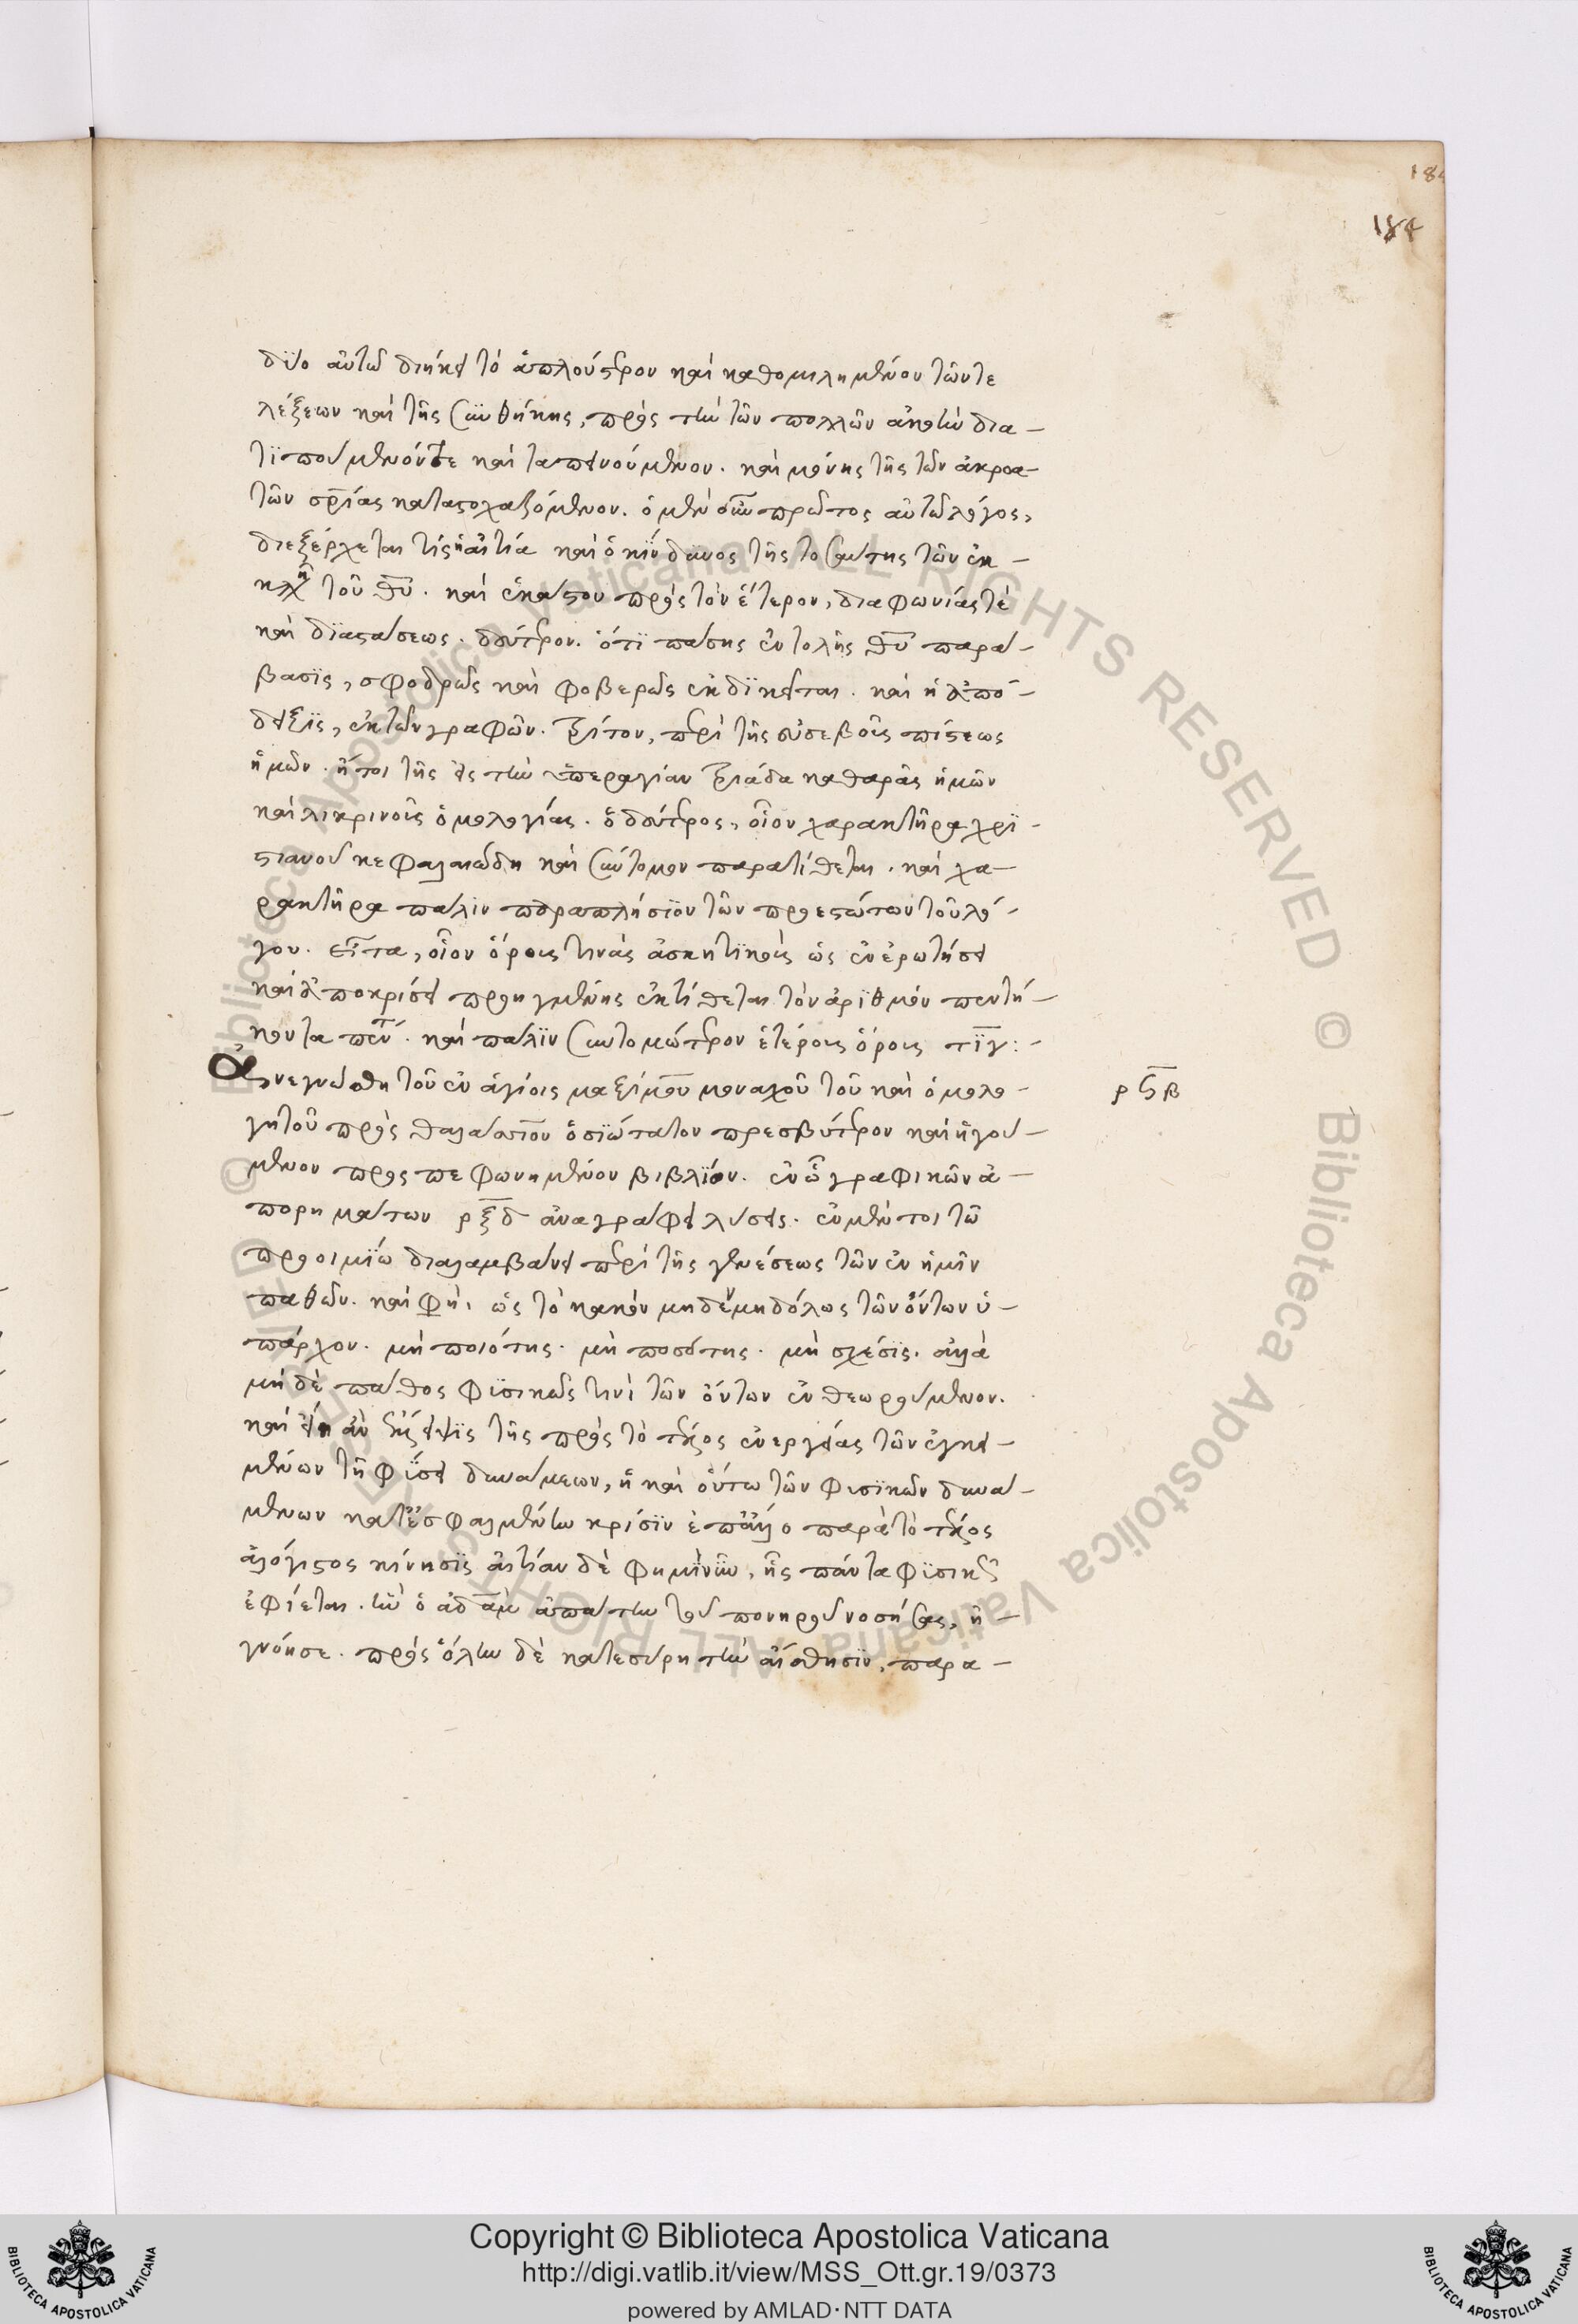 184
184
δύο αὐτῶ διήκει τὸ ἁπλούστερον καὶ καθομιλημένον τῶν τε
λέξεων καὶ τῆς συνθήκης, πρὸς τὴν τῶν πολλῶν ἀκοὴν δια-
τϊπούμενόν τε καὶ ταπεινούμενον. καὶ μόνης τῆς τῶν ἀκροα-
τῶν σρίας καταστοχαζόμενον. ὁ μὲν οὖν πρῶτος αὐτῶ λόγος,
διεξέρχεται τίς ἡ αἰτία καὶ ὁ κίνδυνος τῆς τοσαύτης τῶν ἐκ-
κλη τοῦ θυ. καὶ ἑκάστου πρὸς τὸν ἕτερον, διαφωνίας τὲ
καὶ διαστάσεως. δεύτερον. ὅτϊ πάσης ἐντολῆς θυ παρά-
βασϊς, σφοδρῶς καὶ φοβερῶς ἐκδϊκεῖται. καὶ ἡ ἀπό-
δειξϊς, ἐκ τῶν γραφῶν. τρίτον, περὶ τῆς εὐσεβοῦς πίστεως
ἡμῶν. ἤτοι τῆς εἰς τὴν ὑπεραγίαν τριάδα καθαρᾶς ἡμῶν
καὶ λικρινοῦς ὁμολογίας. ὁ δεύτερος, οἷον χαρακτῆρα χρϊ-
στιανοῦ κεφαλαιώδη καὶ σύντομον παρατίθεται. καὶ χα-
ρακτῆρα πάλϊν παραπλήσϊον τῶν προεστώτων τοῦ λό-
γου. εἶτα, οἷον ὅρους τινὰς ἀσκητϊκοὺς ὡς ἐν ἐρωτήσει
καὶ ἀποκρίσει προηγμένης ἐκτίθεται τὸν ἀρϊθμὸν πεντή-
κοντα πέντ. καὶ πάλϊν συντομώτερον ἑτέρους ὅρους τϊγ:-
Ἀνεγνώσθη τοῦ ἐν ἁγίοις μαξίμου μοναχοῦ τοῦ καὶ ὁμολο-
ρϟβ
γητοῦ πρὸς θαλάσσιον ὁσϊώτατον πρεσβύτερον καὶ ἡγού-
μενον προσπεφωνημένον βιβλϊον. ἐν ὧ γραφικῶν ἀ-
πορημάτων ρξδ ἀναγράφει λύσεις. ἐν μέντοι τῶ
προοιμϊω διαλαμβάνει περὶ τῆς γενέσεως τῶν ἐν ἡμῖν
παθῶν. καὶ φη, ὡς τὸ κακὸν μηδὲν μηδόλως τῶν ὄντων ὑ-
πάρχον. μὴ ποιότης. μὴ ποσότης. μὴ σχέσϊς. ἀλλὰ
μὴ δὲ πάθος φϊσικῶς τινὶ τῶν ὄντων ἐνθεωρούμενον.
καὶ εἴη ἂν ἔλλειψϊς τῆς πρὸς τὸ τέλος ἐνεργείας τῶν ἐγκει-
μένων τῆ φϊσει δυνάμεων, ἢ καὶ οὕτω τῶν φυσϊκῶν δυνά-
μενων κατ' ἐσφαλμένην κρίσϊν ἐπ' ἄλλο παρὰ τὸ τέλος
ἀλόγιστος κίνησϊς αἰτίαν δέ φημὶ νῦν, ἧς πάντα φϊσικῶς
ἐφίεται. ἣν ὁ ἀδὰμ ἀπάτην τοῦ πονηροῦ νοσήσας, ἠ-
γνόησε. πρὸς ὅλην δὲ κατεσύρη τὴν αἴσθησϊν, παρα-
Copyright © Biblioteca Apostolica Vaticana
http://digi.vatlib.it/view/MSS_Ott.gr.19/0373
powered by AMLAD·NTT DATA
BIBLIOTECA APOSTOLICA VATICANA
BIBLIOTECA APOSTOLICA VATICANA
© Biblioteca Apostolica Vaticana ALL RIGHTS RESERVED © Biblioteca Apostolica Vaticana ALL RIGHTS RESERVED